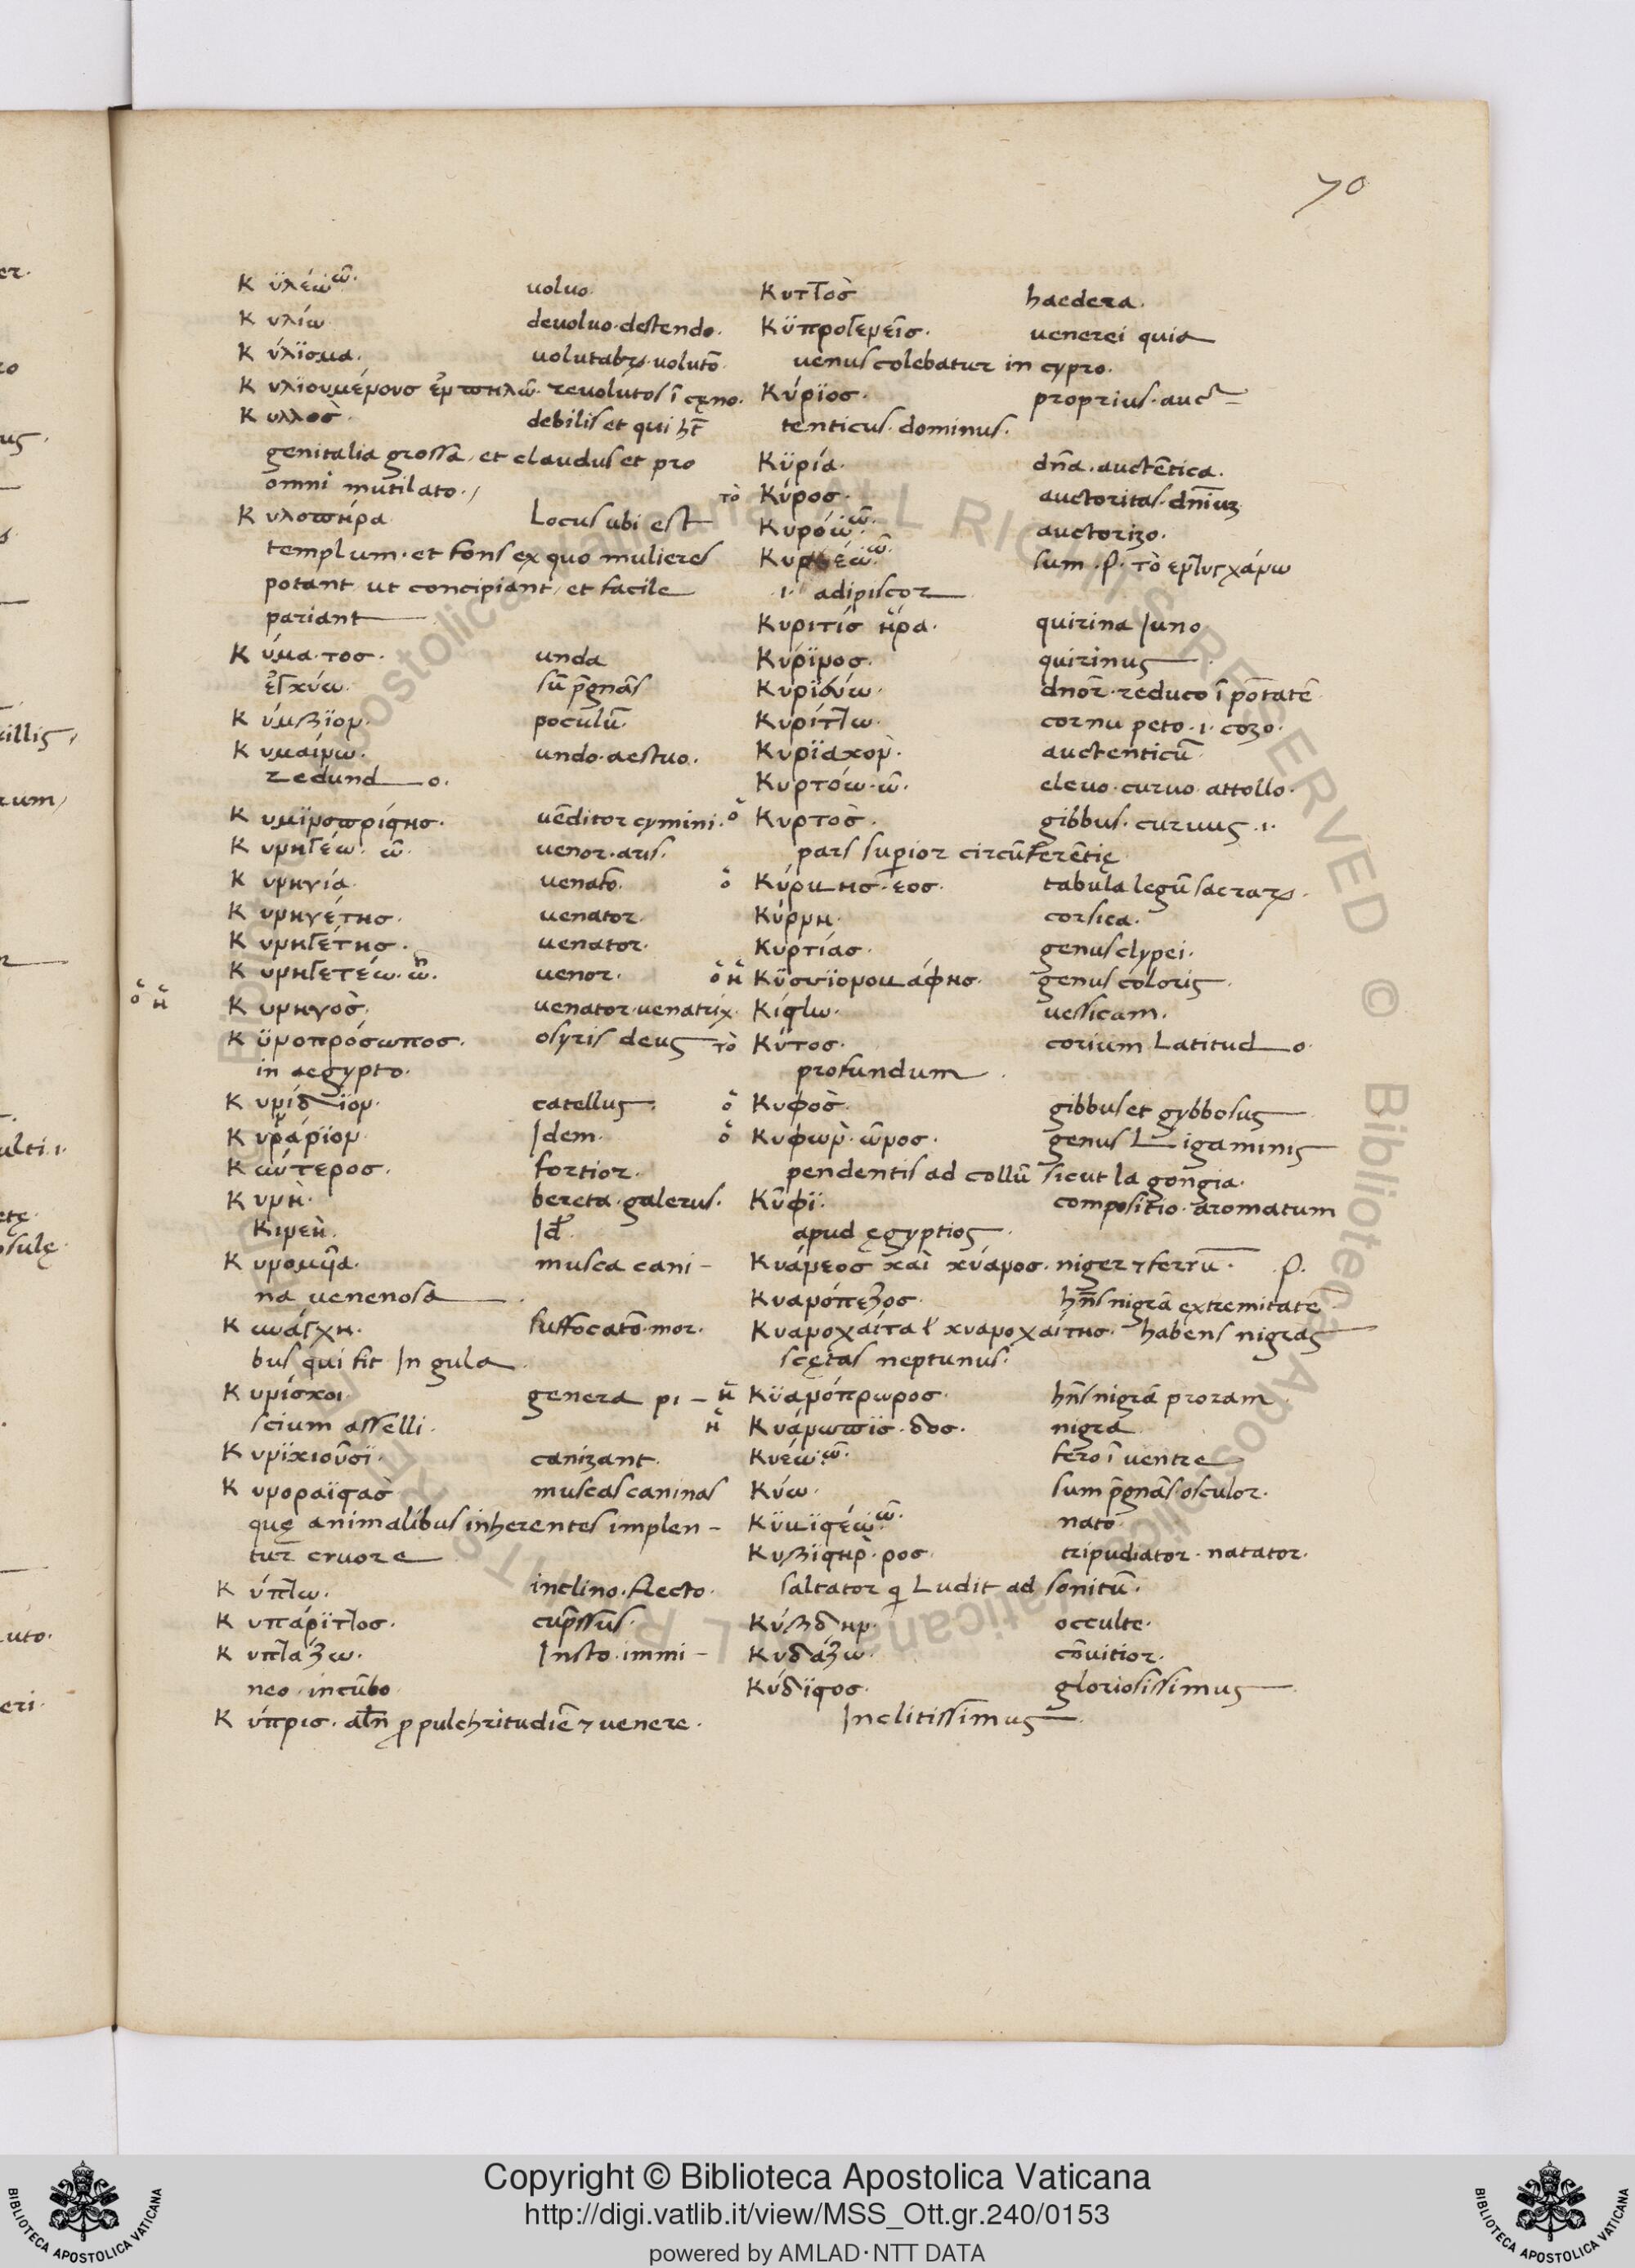 70
Κ ϋλέω ῶ. uoluo.
Κ υλίω deuoluo. destendo.
Κ ύλϊσμα. uolutabrum. uolutō
Κ υλϊουμένους ἐν πηλῶ. reuolutos ī cęno.
Κ υλλοσ̀. debilis et qui ht̄
genitalia grossa, et claudus et pro
omni mutilato.
Κ υλοπήρα Locus ubi est
templum. et fons ex quo mulieres
potant ut concipiant, et facile
pariant
Κ ύμα. τος. unda
ἐγκύω. sū p̄gnās
Κ ύμβϊον. poculū.
Κ υμαίνω. undo. aestuo.
redundo.
Κ υμϊνοπρίστης. uēditor cymini.
Κ υνηγέω. ῶ. uenor. aris.
Κ υνηγία. uenatō.
Κ υνηγέτης. uenator.
Κ υνηγέτης. uenator.
Κ υνηγετέω. ῶ. uenor.
ὁ ἡ Κ υνηγοσ̀. uenator. uenatrix.
Κ ϋνοπρόσωπος. osyris deus
in aegypto.
Κ υνίδϊον. catellus.
Κ υνάρϊον. Idem.
Κ ύντερος. fortior.
Κ υνῆ. bereta. galerus.
Κυνεή. Id.
Κ υνομυῖα. musca cani-
na uenenosa
Κ υνάγχη. suffocatō. mor.
bus qui fit In gula
Κ υνίσκοι. genera pi-
scium asselli.
Κ υνϊκιοῦσϊ. canizant.
Κ υνοραϊστασ̀. muscas caninas
quę animalibus inherentes implen-
tur̄ cruore
Κ ύπτω. inclino. flecto.
Κ υπάρϊττος. cup̄ssus.
Κ υπτάζω. Insto. immi-
neo. incūbo
Κ ύπρις. atn̄ p pulchritudiē & uenere.
Κυττοσ̀ haedera.
Κϋπρογενεῖς. uenerei quia
uenus colebatur in cypro.
Κύρϊος. proprius. auc-
tenticus. dominus.
Κϋρία. dn̄a. auctētica.
τὸ Κύρος. auctoritas. dn̄ium
Κυρόω ῶ. auctorizo.
Κυρέω ῶ. sum. ρ. τὸ ἐντυγχάνω
.i. adipiscor
Κυριτίς ἥρα. quirina Iuno
Κυρϊνος. quirinus
Κυριεύω. dnor̄. reduco ī pōtatē
Κυρίττω. cornu peto. i. cozo.
Κυρϊακον̀. auctenticū
Κυρτόω. ῶ. eleuo. curuo. attollo.
ὁ Κυρτοσ̀. gibbus. curuus .i.
pars superior circūferētię
ὁ Κύρβης. εος. tabula legū sacrarum.
Κύρνη. corsica.
Κυρτίας. genus clypei.
genus coloris
Κίστω. uessicam.
τὸ Κύτος. corium Latitudo.
profundum.
ὁ Κυφοσ̀. gibbus et gybbosus
ὁ Κυφων̀. ῶνος. genus Ligaminis
pendentis ad collū sicut la gongia.
Κῦφϊ. compositio. aromatum
apud ęgyptios.
Κυάνεος καὶ κύανος. niger & ferrū. ρ.
Κυανόπεζος. hn̄s nigrā extremitatē
Κυανοχαίτα ł κυανοχαίτης. habens nigras
scętas neptunus.
ἡ Κϋανόπρωρος. hn̄s nigrā proram.
ἡ Κυάνωπϊς. δος. nigra
Κυέω ῶ. fero ī uentre
Κύω. sum p̄gnās osculor.
Κϋβϊστέω ῶ. nato
Κυβϊστηρ̀. ρος. tripudiator. natator.
saltator q Ludit ad sonitū.
Κύβδην. occulte.
Κυδάζω. cōuitior.
Κύδϊστος. gloriosissimus
Inclitissimus
Copyright © Biblioteca Apostolica Vaticana
http://digi.vatlib.it/view/MSS_Ott.gr.240/0153
powered by AMLAD·NTT DATA